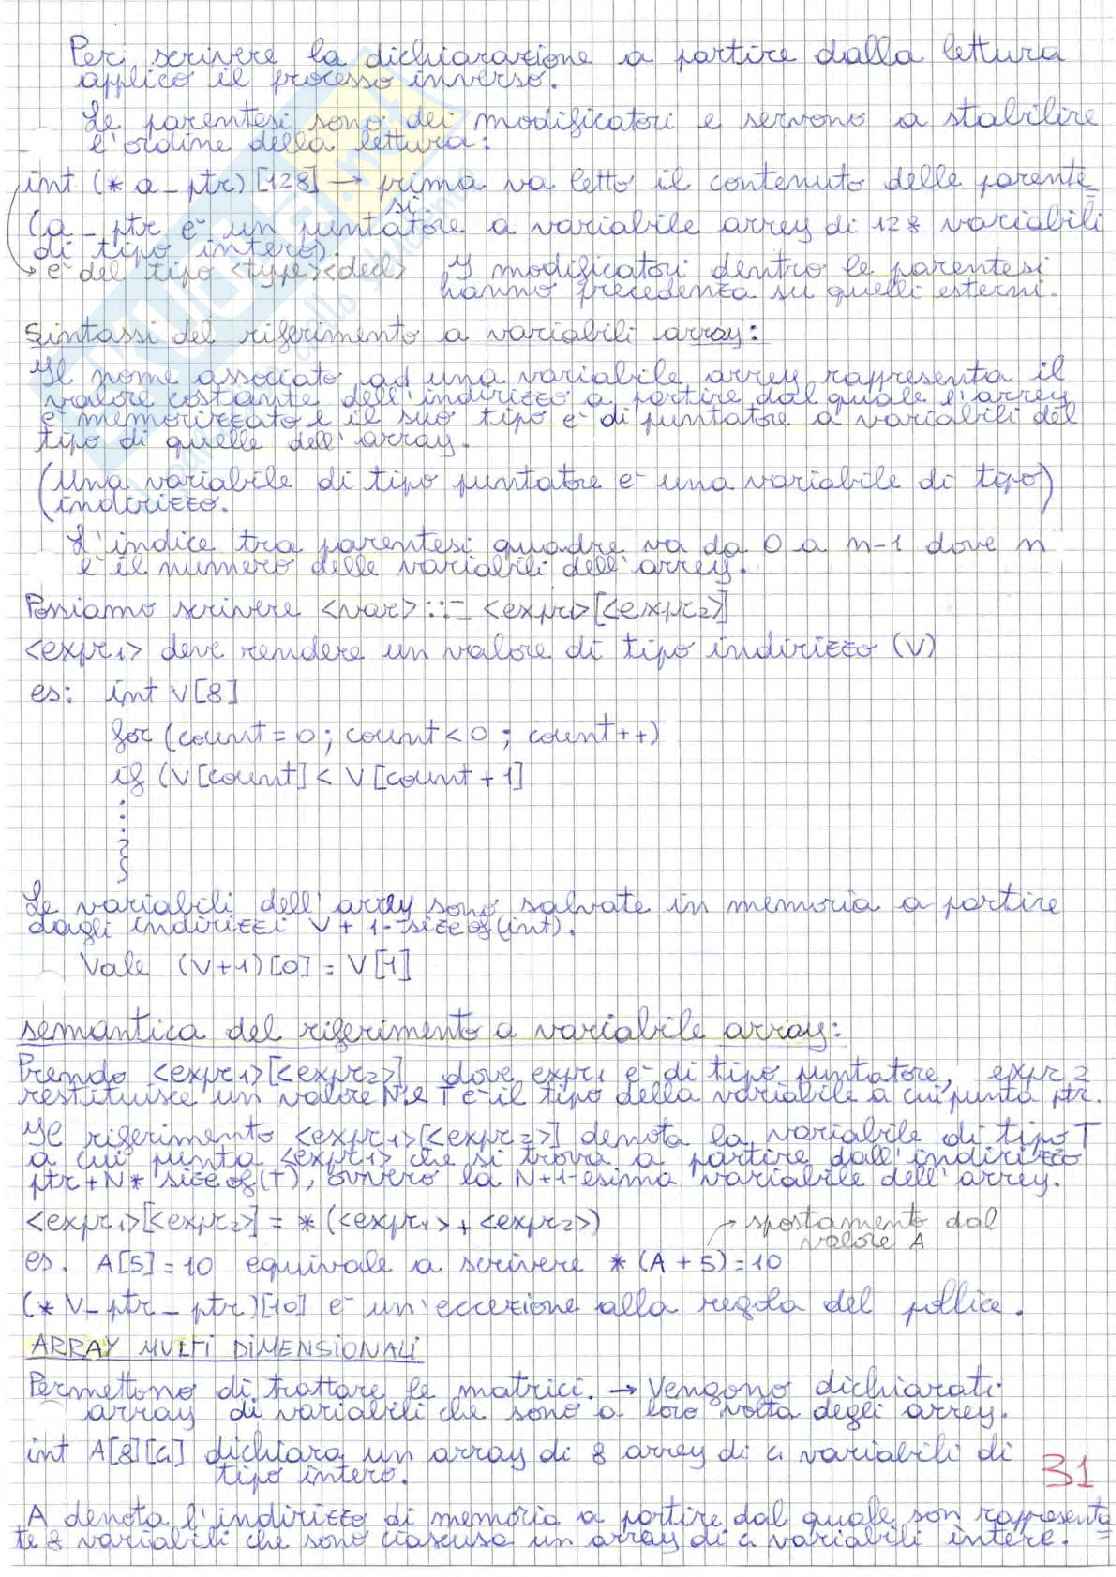 Per scrivere la dichiarazione a partire dalla lettura
applico il processo inverso.
Le parentesi sono dei modificatori e servono a stabilire
l'ordine della lettura:
int (* a_ptr) [128] → prima va letto il contenuto delle parente_
si.
(a_ptr è un puntatore a variabile array di 128 variabili
di tipo intero).
è del tipo <type><decl> I modificatori dentro le parentesi
hanno precedenza su quelli esterni.
Sintassi del riferimento a variabili array:
Il nome associato ad una variabile array rappresenta il
valore costante dell'indirizzo a partire dal quale l'array
è memorizzato e il suo tipo è di puntatore a variabili del
tipo di quelle dell'array.
(Una variabile di tipo puntatore è una variabile di tipo)
indirizzo.
L'indice tra parentesi quadre va da 0 a n-1 dove n
è il numero delle variabili dell'array.
Possiamo scrivere <var> ::= <expr1>[<expr2>]
<expr1> deve rendere un valore di tipo indirizzo (V)
es: int V[8]
for (count=0; count<0; count++)
if (V[count] < V[count+1]
Le variabili dell'array sono salvate in memoria a partire
dagli indirizzi V+1·sizeof(int).
Vale (V+1)[0] = V[1]
semantica del riferimento a variabile array:
Prendo <expr1>[<expr2>] dove expr1 è di tipo puntatore, expr2
restituisce un valore N e T è il tipo della variabile a cui punta ptr.
Il riferimento <expr1>[<expr2>] denota la variabile di tipo T
a cui punta <expr1> che si trova a partire dall'indirizzo
ptr+N* sizeof(T), ovvero la N+1-esima variabile dell'array.
<expr1>[<expr2>] = *(<expr1>+<expr2>)
→ spostamento dal
valore A
es. A[5]=10 equivale a scrivere *(A+5)=10
(* V_ptr_ptr)[10] è un'eccezione alla regola del pollice.
ARRAY MULTI DIMENSIONALI
Permettono di trattare le matrici. → Vengono dichiarati
array di variabili che sono a loro volta degli array.
int A[8][4] dichiara un array di 8 array di 4 variabili di
tipo intero.
31
A denota l'indirizzo di memoria a partire dal quale son rappresenta
te 8 variabili che sono ciascuna un array di 4 variabili intere.